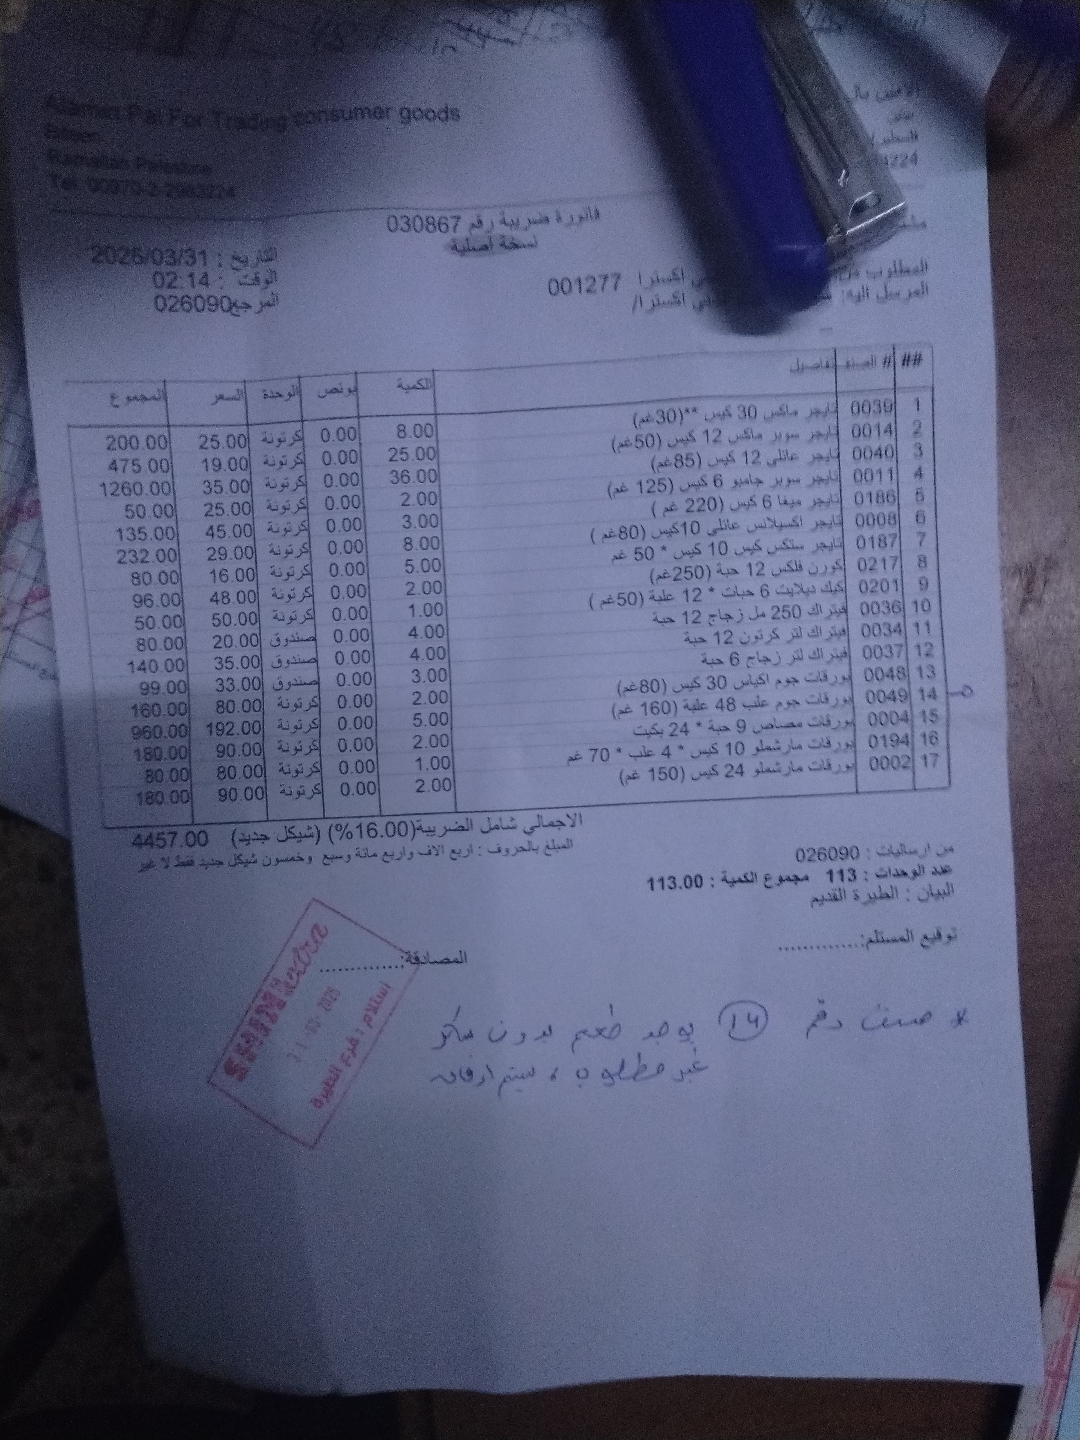 Pal For Trading consumer goods
Ramallah Palestine
Tel: 00970-2-2963224
الامين بال
224
فاتورة ضريبة رقم 030867
نسخة اصلية
التاريخ : 2025/03/31
الوقت : 02:14
المرجع 026090
المطلوب من اكسترا 001277
المرسل اليه: اكسترا/
## # الصنف تفاصيل الكمية بونص الوحدة السعر المجموع
1 0039 تايجر ماكس 30 كيس **(30غم) 8.00 0.00 كرتونة 25.00 200.00
2 0014 تايجر سوبر ماكس 12 كيس (50غم) 25.00 0.00 كرتونة 19.00 475.00
3 0040 تايجر عائلي 12 كيس (85غم) 36.00 0.00 كرتونة 35.00 1260.00
4 0011 تايجر سوبر جامبو 6 كيس (125 غم) 2.00 0.00 كرتونة 25.00 50.00
5 0186 تايجر ميغا 6 كيس (220 غم ) 3.00 0.00 كرتونة 45.00 135.00
6 0008 تايجر اكسيلانس عائلي 10كيس (80غم ) 8.00 0.00 كرتونة 29.00 232.00
7 0187 تايجر ستكس كيس 10 كيس * 50 غم 5.00 0.00 كرتونة 16.00 80.00
8 0217 كورن فلكس 12 حبة (250غم) 2.00 0.00 كرتونة 48.00 96.00
9 0201 كيك ديلايت 6 حبات * 12 علبة (50غم ) 1.00 0.00 كرتونة 50.00 50.00
10 0036 فيتراك 250 مل زجاج 12 حبة 4.00 0.00 صندوق 20.00 80.00
11 0034 فيتراك لتر كرتون 12 حبة 4.00 0.00 صندوق 35.00 140.00
12 0037 فيتراك لتر زجاج 6 حبة 3.00 0.00 صندوق 33.00 99.00
13 0048 يورقات جوم اكياس 30 كيس (80غم) 2.00 0.00 كرتونة 80.00 160.00
14 0049 يورقات جوم علب 48 علبة (160 غم) 5.00 0.00 كرتونة 192.00 960.00
15 0004 يورقات مصاص 9 حبة * 24 بكيت 2.00 0.00 كرتونة 90.00 180.00
16 0194 يورقات مارشملو 10 كيس * 4 علب * 70 غم 1.00 0.00 كرتونة 80.00 80.00
17 0002 يورقات مارشملو 24 كيس (150 غم) 2.00 0.00 كرتونة 90.00 180.00
الاجمالي شامل الضريبة(16.00%) (شيكل جديد) 4457.00
المبلغ بالحروف : اربع الاف واربع مائة وسبع وخمسون شيكل جديد فقط لا غير
من ارساليات : 026090
عدد الوحدات : 113 مجموع الكمية : 113.00
البيان : الطيرة القديم
توقيع المستلم:.............
المصادقة:.............
SHINI extra
31 03 2025
استلام : فرع الطيرة
* صنف رقم 14 يوجد طعم بدون سكر
غير مطلوب ، سيتم ارفاقه